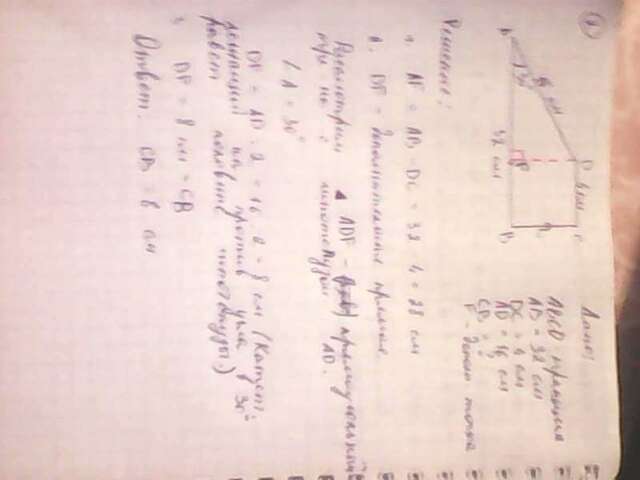 2
A
30°
16 см
32 см
F
D
4 см
B
C
Дано:
ABCD трапеция
AB = 32 см
DC = 4 см
AD = 16 см
CB = ?
F - доп точка
Решение:
1. AF = AB - DC = 32 - 4 = 28 см
DF = дополнительная прямая.
Рассмотрим ADF - прямоугольный
при
гипотенузы AD.
∠A = 30°
DF = AD : 2 = 16 : 2 = 8 см (Катет,
лежащий на против угла в 30°
равен половине гипотенузы.)
DF = 8 см = CB
Ответ: CB = 8 см